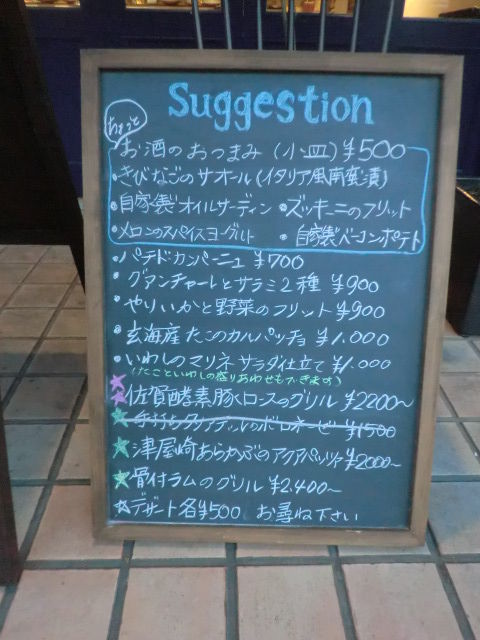 Suggestion
ちょっと
お酒のおつまみ (小皿) ¥500
・きびなごのサオール(イタリア風南蛮漬)
・自家製オイルサーディン ズッキーニのフリット
・メロンのスパイスヨーグルト ・自家製ベーコンポテト
・パテドカンパーニュ ¥700
・グアンチャーレとサラミ2種 ¥900
・やりいかと野菜のフリット ¥900
・玄海産たこのカルパッチョ ¥1.000
・いわしのマリネ サラダ仕立て ¥1.000
(たこといわしの盛りあわせもできます)
★佐賀酵素豚ロースのグリル ¥2200〜
★手打ちタリアテッレのボロネーゼ ¥1500
★津屋崎あらかぶのアクアパッツァ ¥2000〜
★骨付ラムのグリル ¥2,400〜
★デザート各¥500 お尋ね下さい